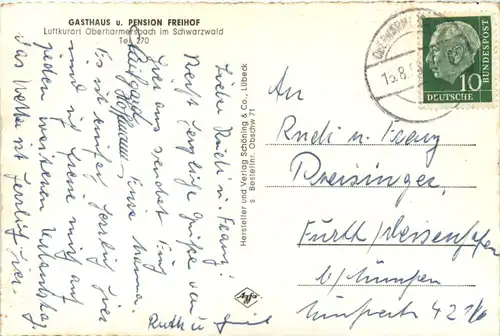 GASTHAUS u. PENSION FREIHOF
Luftkurort Oberharmersbach im Schwarzwald
Tel. 270
Liebe Rudi u. Franz!
Recht herzliche Grüße von
hier aus sendet Euch
Eure Hanna.
Es ist einfach herrlich hier
und ich freue mich auf
jeden weiteren Urlaubstag.
Das Wetter ist herrlich hier
Ruth u.
Hersteller und Verlag Schöning & Co., Lübeck
s. Bestellnr. Obschw 71
OBERHARMERSBACH
15.8.
DEUTSCHE
BUNDESPOST
10
An
Rudi u. Franz
Preisinger,
Fürth/Deisenhofen
b/München
421